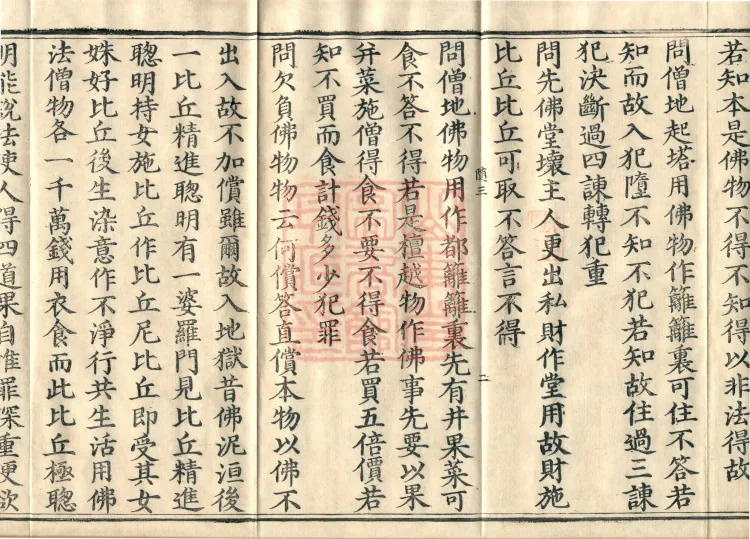 若知本是佛物不得不知得以非法得故
問僧地起塔用佛物作籬籬裏可住不答若
知而故入犯墮不知不犯若知故住過三諫
犯決斷過四諫轉犯重
問先佛堂壞主人更出私財作堂用故財施
比丘比丘可取不答言不得
問僧地佛物用作都籬籬裏先有井果菜可
食不答不得若是檀越物作佛事先要以果
并菜施僧得食不要不得食若買五倍價若
知不買而食計錢多少犯罪
問欠負佛物物云何償答直償本物以佛不
出入故不加償雖爾故入地獄昔佛泥洹後
一比丘精進聰明有一婆羅門見比丘精進
聰明持女施比丘作比丘尼比丘即受其女
姝好比丘後生染意作不淨行共生活用佛
法僧物各一千萬錢用衣食而此比丘極聰
明能説法使人得四道果自惟罪深重更欲
二